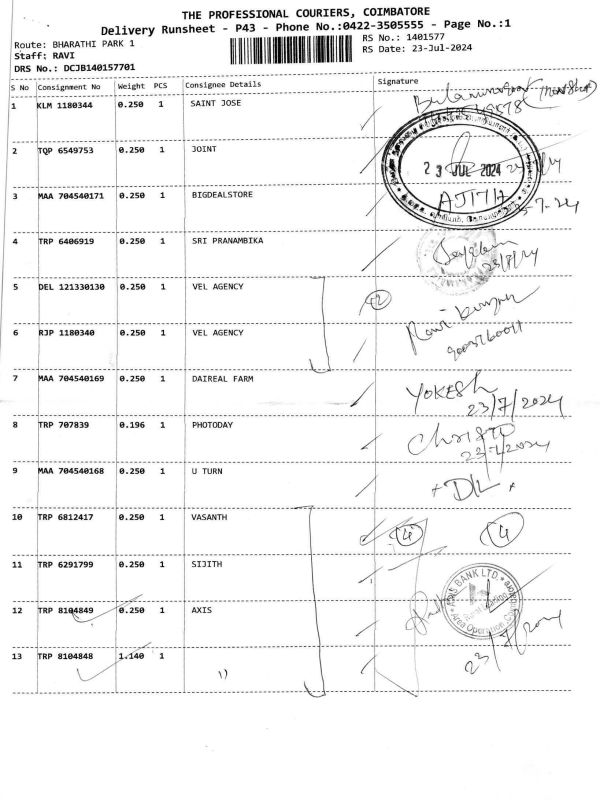 THE PROFESSIONAL COURIERS, COIMBATORE
Delivery Runsheet - P43 - Phone No.:0422-3505555 - Page No.:1
Route: BHARATHI PARK 1
RS No.: 1401577
Staff: RAVI
RS Date: 23-Jul-2024
DRS No.: DCJB140157701
S No Consignment No Weight PCS Consignee Details Signature
1 KLM 1180344 0.250 1 SAINT JOSE
2 TQP 6549753 0.250 1 JOINT
23 JUL 2024
3 MAA 704540171 0.250 1 BIGDEALSTORE
AJITH
4 TRP 6406919 0.250 1 SRI PRANAMBIKA
5 DEL 121330130 0.250 1 VEL AGENCY
2
6 RJP 1180340 0.250 1 VEL AGENCY
7 MAA 704540169 0.250 1 DAIREAL FARM
YOKESH
23/7/2024
8 TRP 707839 0.196 1 PHOTODAY
23/7/2024
9 MAA 704540168 0.250 1 U TURN
10 TRP 6812417 0.250 1 VASANTH
4 4
11 TRP 6291799 0.250 1 SIJITH
AXIS BANK LTD.
12 TRP 8104849 0.250 1 AXIS
13 TRP 8104848 1.140 1
23/7/2024